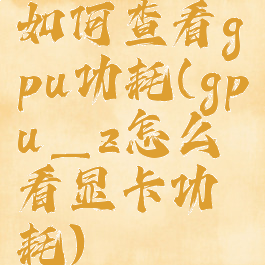 如何查看g
pu功耗(gp
u_z怎么
看显卡功
耗)